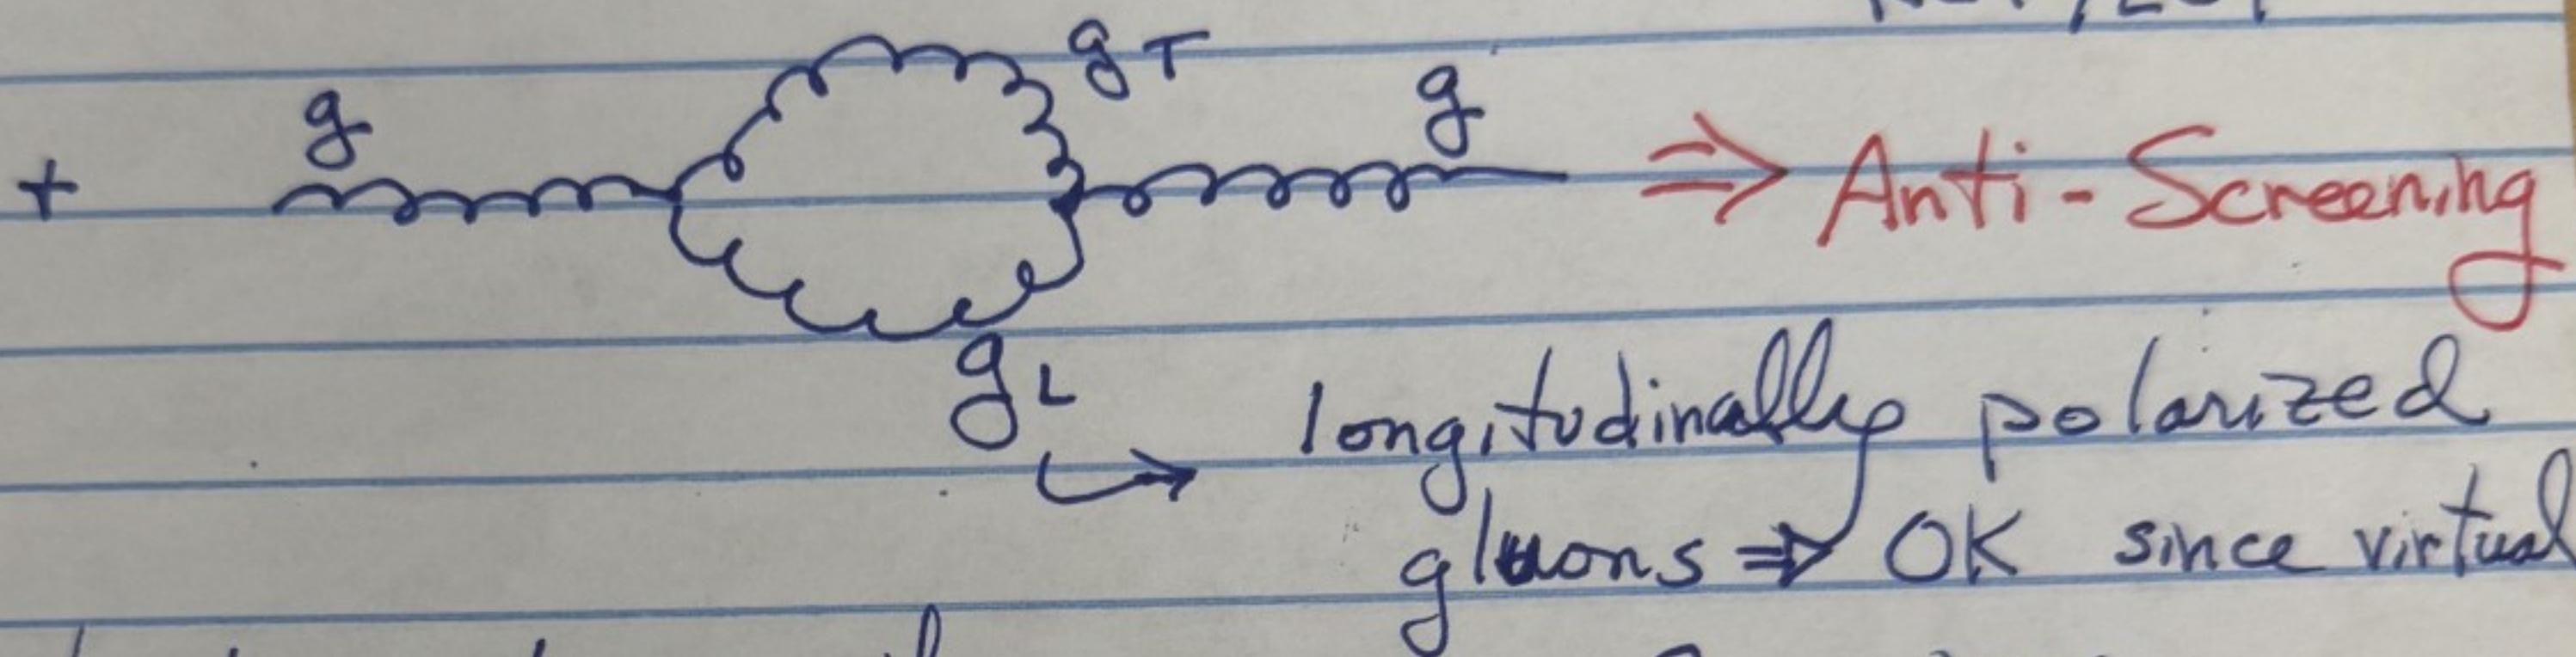 g_T
+ g g ⇒ Anti-Screening
g_L
↳ longitudinally polarized
gluons ⇒ OK since virtual